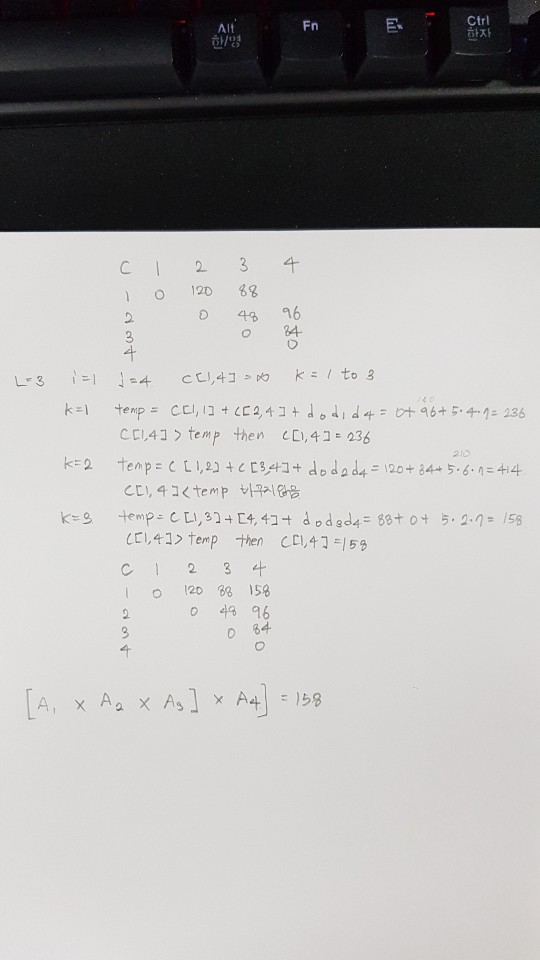 Alt Fn E Ctrl
한/영 한자
C 1 2 3 4
1 0 120 88
2 0 48 96
3 0 84
4 0
L=3 i=1 j=4 C[1,4]=∞ k=1 to 3
140
k=1 temp = C[1,1] + C[2,4] + d₀d₁d₄ = 0+96+5·4·7=236
C[1,4] > temp then C[1,4]=236
210
k=2 temp = C[1,2] + C[3,4] + d₀d₂d₄ = 120+84+5·6·7=414
C[1,4] < temp 바꾸지않음
k=3 temp = C[1,3] + [4,4] + d₀d₃d₄ = 88+0+ 5·2·7= 158
C[1,4] > temp then C[1,4]=158
C 1 2 3 4
1 0 120 88 158
2 0 48 96
3 0 84
4 0
[A₁ × A₂ × A₃] × A₄] = 158